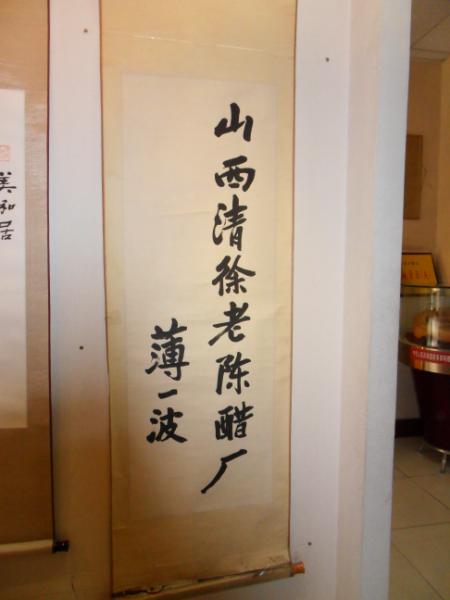 山西清徐老陈醋厂
薄一波
美和居